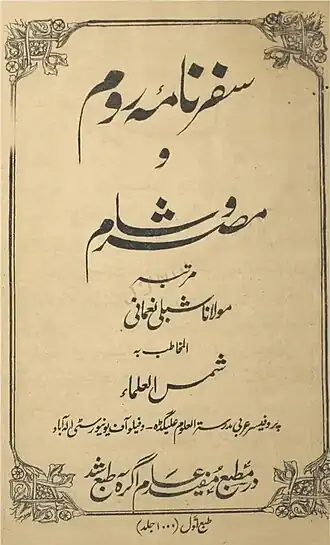 سفرنامۂ روم
و
مصر و شام
مرتبہ
مولانا شبلی نعمانی
المخاطب بہ
شمس العلماء
پروفیسر عربی مدرسۃ العلوم علیگڑہ - وفیلو آف یونیورسٹی الہ آباد
در مطبع مفید عام آگرہ طبع شد
طبع اول (۱۰۰۰ جلد)